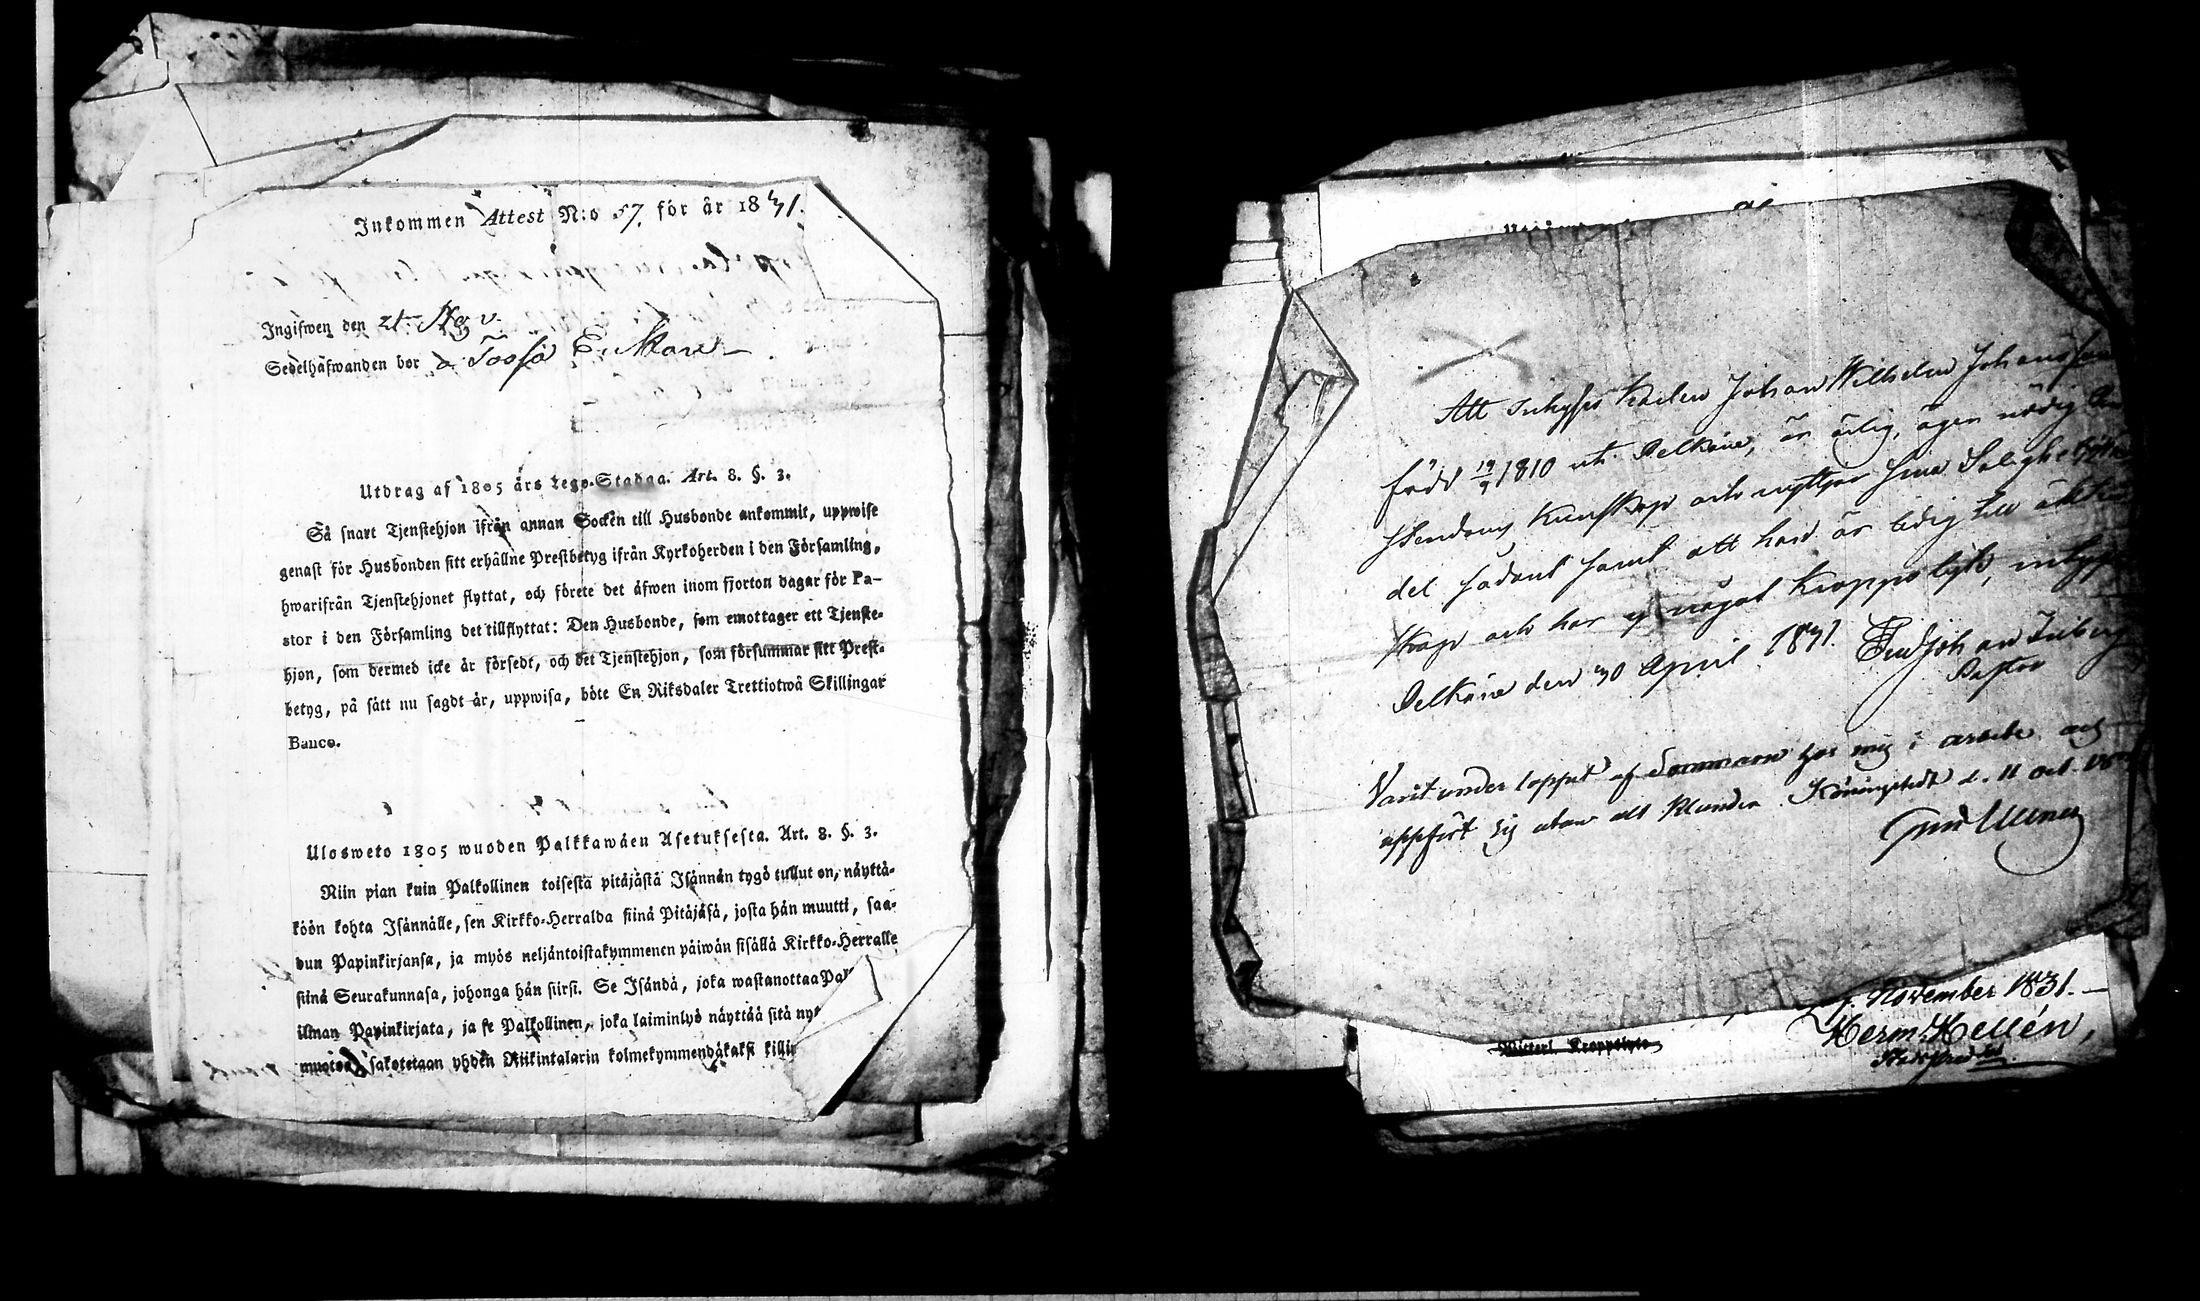 Inkommen Attest N:o 57. för år 1831.
Ingifwen den 21. Nov.
Sedelhafwanden bor
Utdrag af 1805 års Lego-Stadga. Art. 8. §. 3.
Så snart Tjenstehjon ifrån annan Socken till Husbonde ankommit, uppwise
genast för Husbonden sitt erhållne Prestbetyg ifrån Kyrkoherden i den Församling,
hwarifrån Tjenstehjonet flyttat, och förete det äfwen inom fjorton dagar för Pa-
stor i den Församling det tillflyttat: Den Husbonde, som emottager ett Tjenste-
hjon, som dermed icke är försedt, och det Tjenstehjon, som försummar sitt Prest-
betyg, på sätt nu sagdt är, uppwisa, böte En Riksdaler Trettiotwå Skillingar
Banco.
Ulosweto 1805 wuoden Palkkawäen Asetuksesta. Art. 8. §. 3.
Niin pian kuin Palkollinen toisesta pitäjästä Isännän tygö tullut on, näyttä-
köön kohta Isännälle, sen Kirkko-Herralda siinä Pitäjäsä, josta hän muutti, saa-
dun Papinkirjansa, ja myös neljäntoistakymmenen päiwän sisällä Kirkko-Herralle
siinä Seurakunnasa, johonga hän siirsi. Se Isändä, joka wastanottaa Pal
ilman Papinkirjata, ja se Palkollinen, joka laiminlyö näyttää sitä nyt
muotoa, sakotetaan yhden Riikintalarin kolmekymmendäkaksi killin
Att Inhyses Karlen Johan Wilhelm Johansson
född 19/9 1810 uti Pelkäne, är ärlig, äger nödig
Kunskap och nyttjar sina Salighets
det sådant samt att han är ledig till äkten
skap och har ej något Kroppslyte, intygar
Pelkäne den 30 April 1831.
Pastor
Varit under loppet af Sommaren hos mig i arbete och
uppfört sig utan allt klander. Königstedt d. 11 Oct.
November 1831.
Herm. Hellén,
Witterl. Kroppslyte